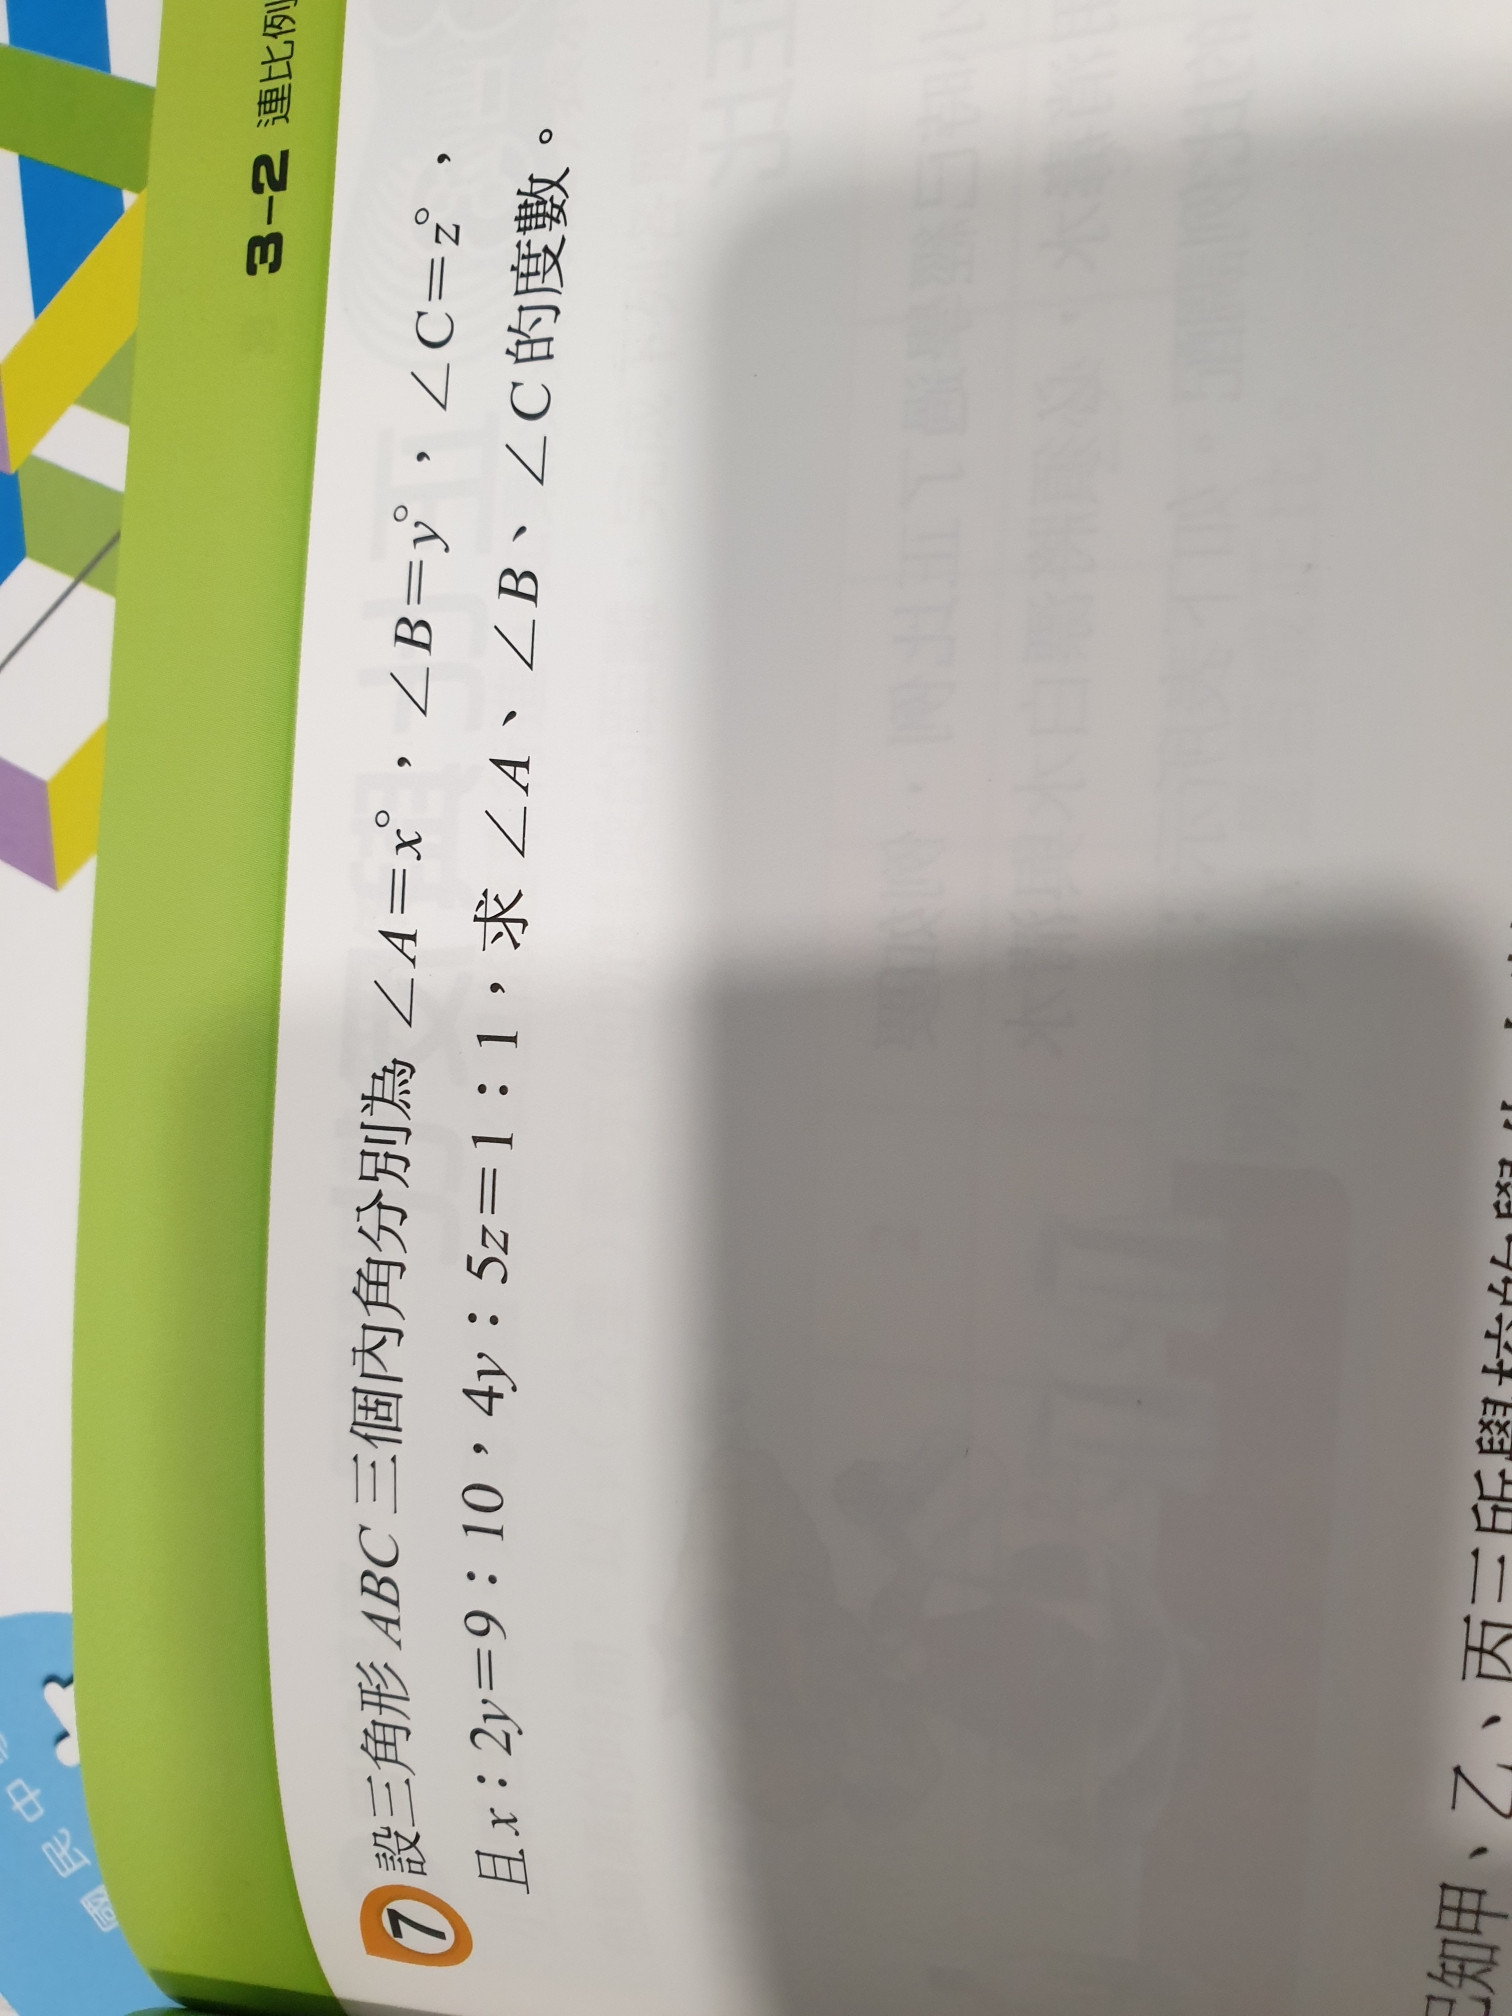 3-2 連比例
7 設三角形 ABC 三個內角分別為 ∠A=x°，∠B=y°，∠C=z°，
且 x：2y=9：10，4y：5z=1：1，求 ∠A、∠B、∠C 的度數。
知甲、乙、丙三所學校的學生
國民中